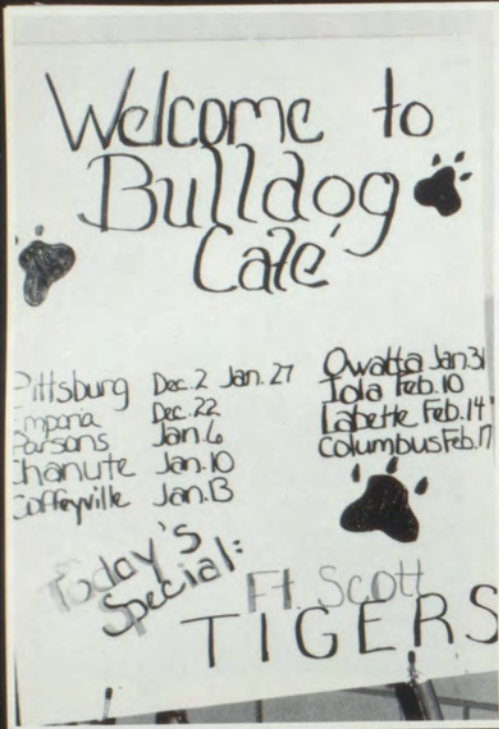 Welcome to
Bulldog
Café
Pittsburg Dec. 2 Jan. 27
Emporia Dec. 22
Parsons Jan. 6
Chanute Jan. 10
Coffeyville Jan. 13
Owatta Jan 31
Iola Feb. 10
Labette Feb. 14
Columbus Feb. 17
Today's
Special:
Ft. Scott
TIGERS